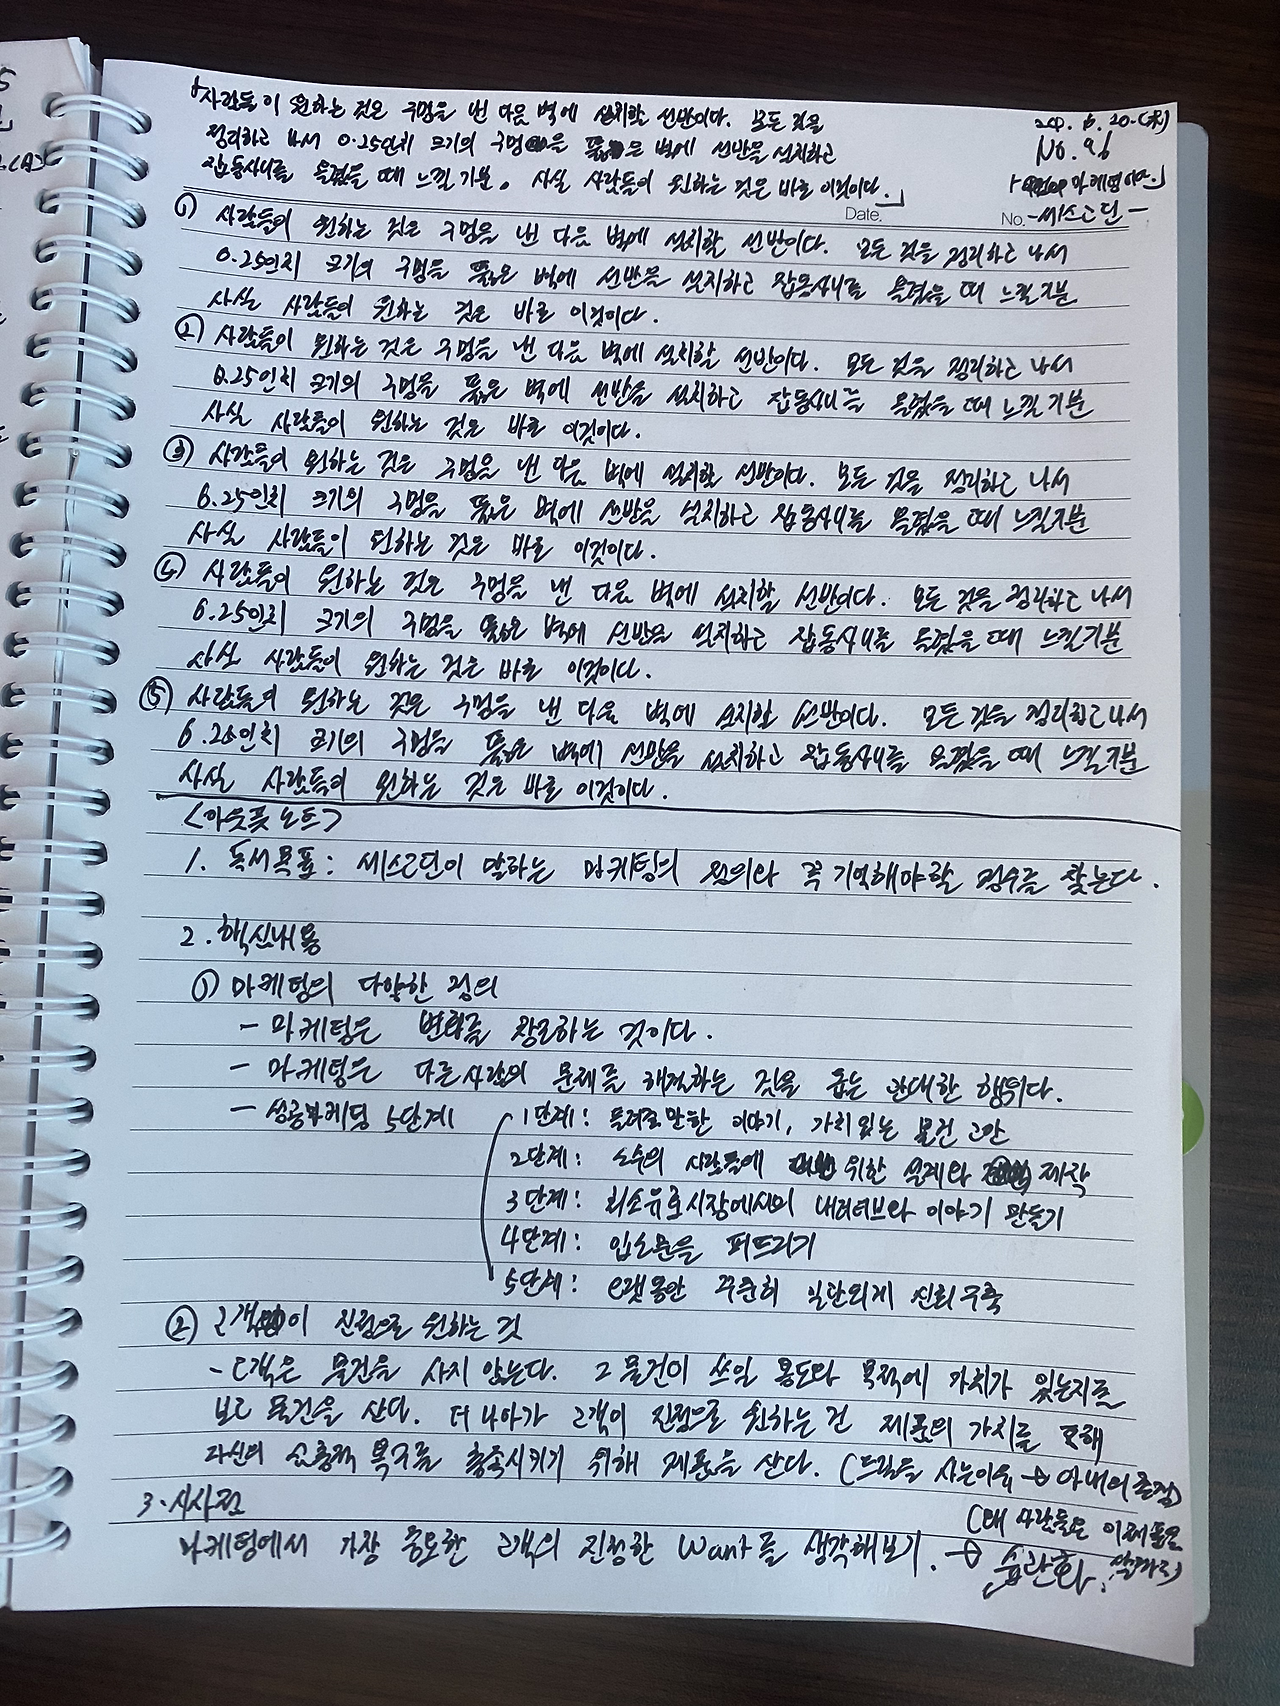 「사람들이 원하는 것은 구멍을 낸 다음 벽에 설치할 선반이다. 모든 것을
정리하고 나서 0.25인치 크기의 구멍을 뚫은 벽에 선반을 설치하고
잡동사니를 올렸을 때 느낄 기분. 사실 사람들이 원하는 것은 바로 이것이다.」
6. 20. (水)
No. 96
마케팅이다.」
Date.
No. -세스고딘-
① 사람들이 원하는 것은 구멍을 낸 다음 벽에 설치할 선반이다. 모든 것을 정리하고 나서
0.25인치 크기의 구멍을 뚫은 벽에 선반을 설치하고 잡동사니를 올렸을 때 느낄 기분
사실 사람들이 원하는 것은 바로 이것이다.
② 사람들이 원하는 것은 구멍을 낸 다음 벽에 설치할 선반이다. 모든 것을 정리하고 나서
0.25인치 크기의 구멍을 뚫은 벽에 선반을 설치하고 잡동사니를 올렸을 때 느낄 기분
사실 사람들이 원하는 것은 바로 이것이다.
③ 사람들이 원하는 것은 구멍을 낸 다음 벽에 설치할 선반이다. 모든 것을 정리하고 나서
0.25인치 크기의 구멍을 뚫은 벽에 선반을 설치하고 잡동사니를 올렸을 때 느낄 기분
사실 사람들이 원하는 것은 바로 이것이다.
④ 사람들이 원하는 것은 구멍을 낸 다음 벽에 설치할 선반이다. 모든 것을 정리하고 나서
0.25인치 크기의 구멍을 뚫은 벽에 선반을 설치하고 잡동사니를 올렸을 때 느낄 기분
사실 사람들이 원하는 것은 바로 이것이다.
⑤ 사람들이 원하는 것은 구멍을 낸 다음 벽에 설치할 선반이다. 모든 것을 정리하고 나서
0.25인치 크기의 구멍을 뚫은 벽에 선반을 설치하고 잡동사니를 올렸을 때 느낄 기분
사실 사람들이 원하는 것은 바로 이것이다.
<아웃풋 노트>
1. 독서목표 : 세스고딘이 말하는 마케팅의 정의와 꼭 기억해야할 정수를 찾는다.
2. 핵심내용
① 마케팅의 다양한 정의
- 마케팅은 변화를 창조하는 것이다.
- 마케팅은 다른사람의 문제를 해결하는 것을 돕는 관대한 행위다.
- 성공마케팅 5단계
1단계 : 들려줄만한 이야기, 가치있는 물건 고안
2단계 : 소수의 사람들에 위한 설계와 제작
3단계 : 최소유효시장에서의 내러티브와 이야기 만들기
4단계 : 입소문을 퍼뜨리기
5단계 : 오랫동안 꾸준히 일관되게 신뢰구축
② 고객이 진정으로 원하는 것
- 고객은 물건을 사지 않는다. 그 물건이 쓰일 용도와 목적에 가치가 있는지를
보고 물건을 산다. 더 나아가 고객이 진정으로 원하는 건 제품의 가치를 통해
자신의 욕구를 충족시키기 위해 제품을 산다. (드릴을 사는이유 → 아내의 존경)
3. 시사점
(왜 사람들은 이제품을 살까?)
마케팅에서 가장 중요한 고객의 진정한 want를 생각해보기. → 습관화!